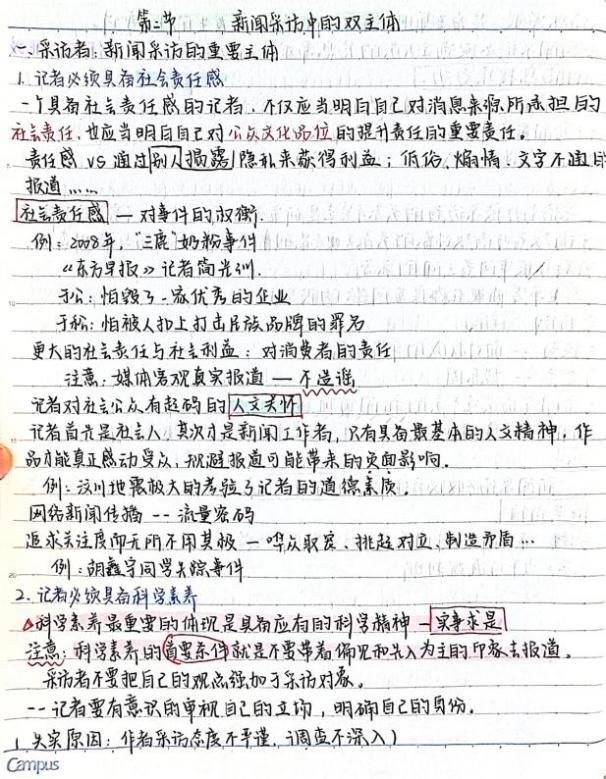 第二节 新闻采访中的双主体
一、采访者:新闻采访的重要主体
1. 记者必须具有社会责任感
一个具有社会责任感的记者,不仅应当明白自己对消息来源所承担的
社会责任,也应当明白自己对公众文化品位的提升责任的重要责任。
责任感 vs 通过别人揭露隐私来获得利益;低俗、煽情、文字不通的
报道……
社会责任感 — 对事件的权衡.
例:2008年,"三鹿"奶粉事件
《东方早报》记者简光洲.
于公:怕毁了一家优秀的企业
于私:怕被人扣上打击民族品牌的罪名
更大的社会责任与社会利益:对消费者的责任
注意:媒体客观真实报道 — 不造谣
记者对社会公众有起码的人文关怀
记者首先是社会人,其次才是新闻工作者,只有具备最基本的人文精神,作
品才能真正感动受众,规避报道可能带来的负面影响.
例:汶川地震极大的考验了记者的道德素质
网络新闻传播 -- 流量密码
追求关注度而无所不用其极 — 哗众取宠、挑起对立、制造矛盾…
例:胡鑫宇同学失踪事件
2. 记者必须具有科学素养
△科学素养最重要的体现是具备应有的科学精神 — 实事求是
注意:科学素养的首要条件就是不要带着偏见和先入为主的印象去报道。
采访者不要把自己的观点强加于采访对象。
-- 记者要有意识的审视自己的立场,明确自己的身份.
1. 失实原因:作者采访态度不严谨,调查不深入)
Campus